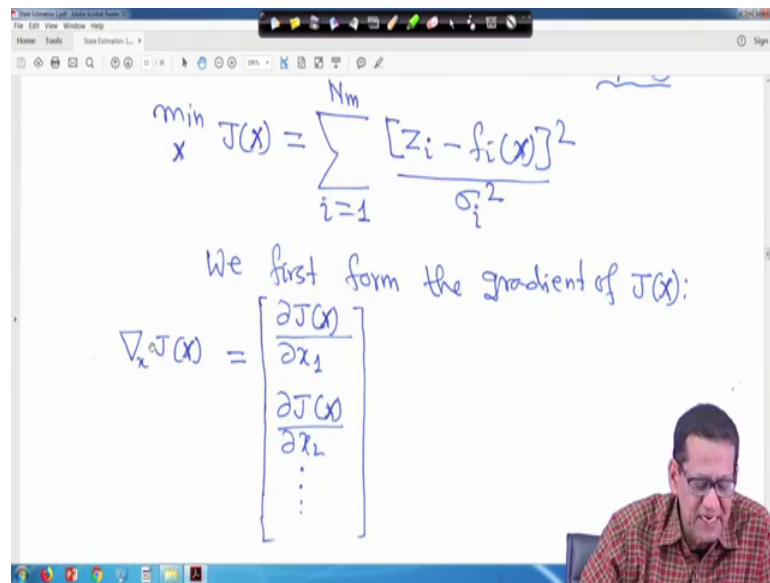 State Estimation 1.pdf - Adobe Acrobat Reader DC
File Edit View Window Help
Home Tools State Estimation 1... × Sign
min J(x) = Σ [Zi - fi(x)]² / σi²
x i=1 Nm
We first form the gradient of J(x):
∇x J(x) = [ ∂J(x)/∂x1
∂J(x)/∂x2
⋮ ]